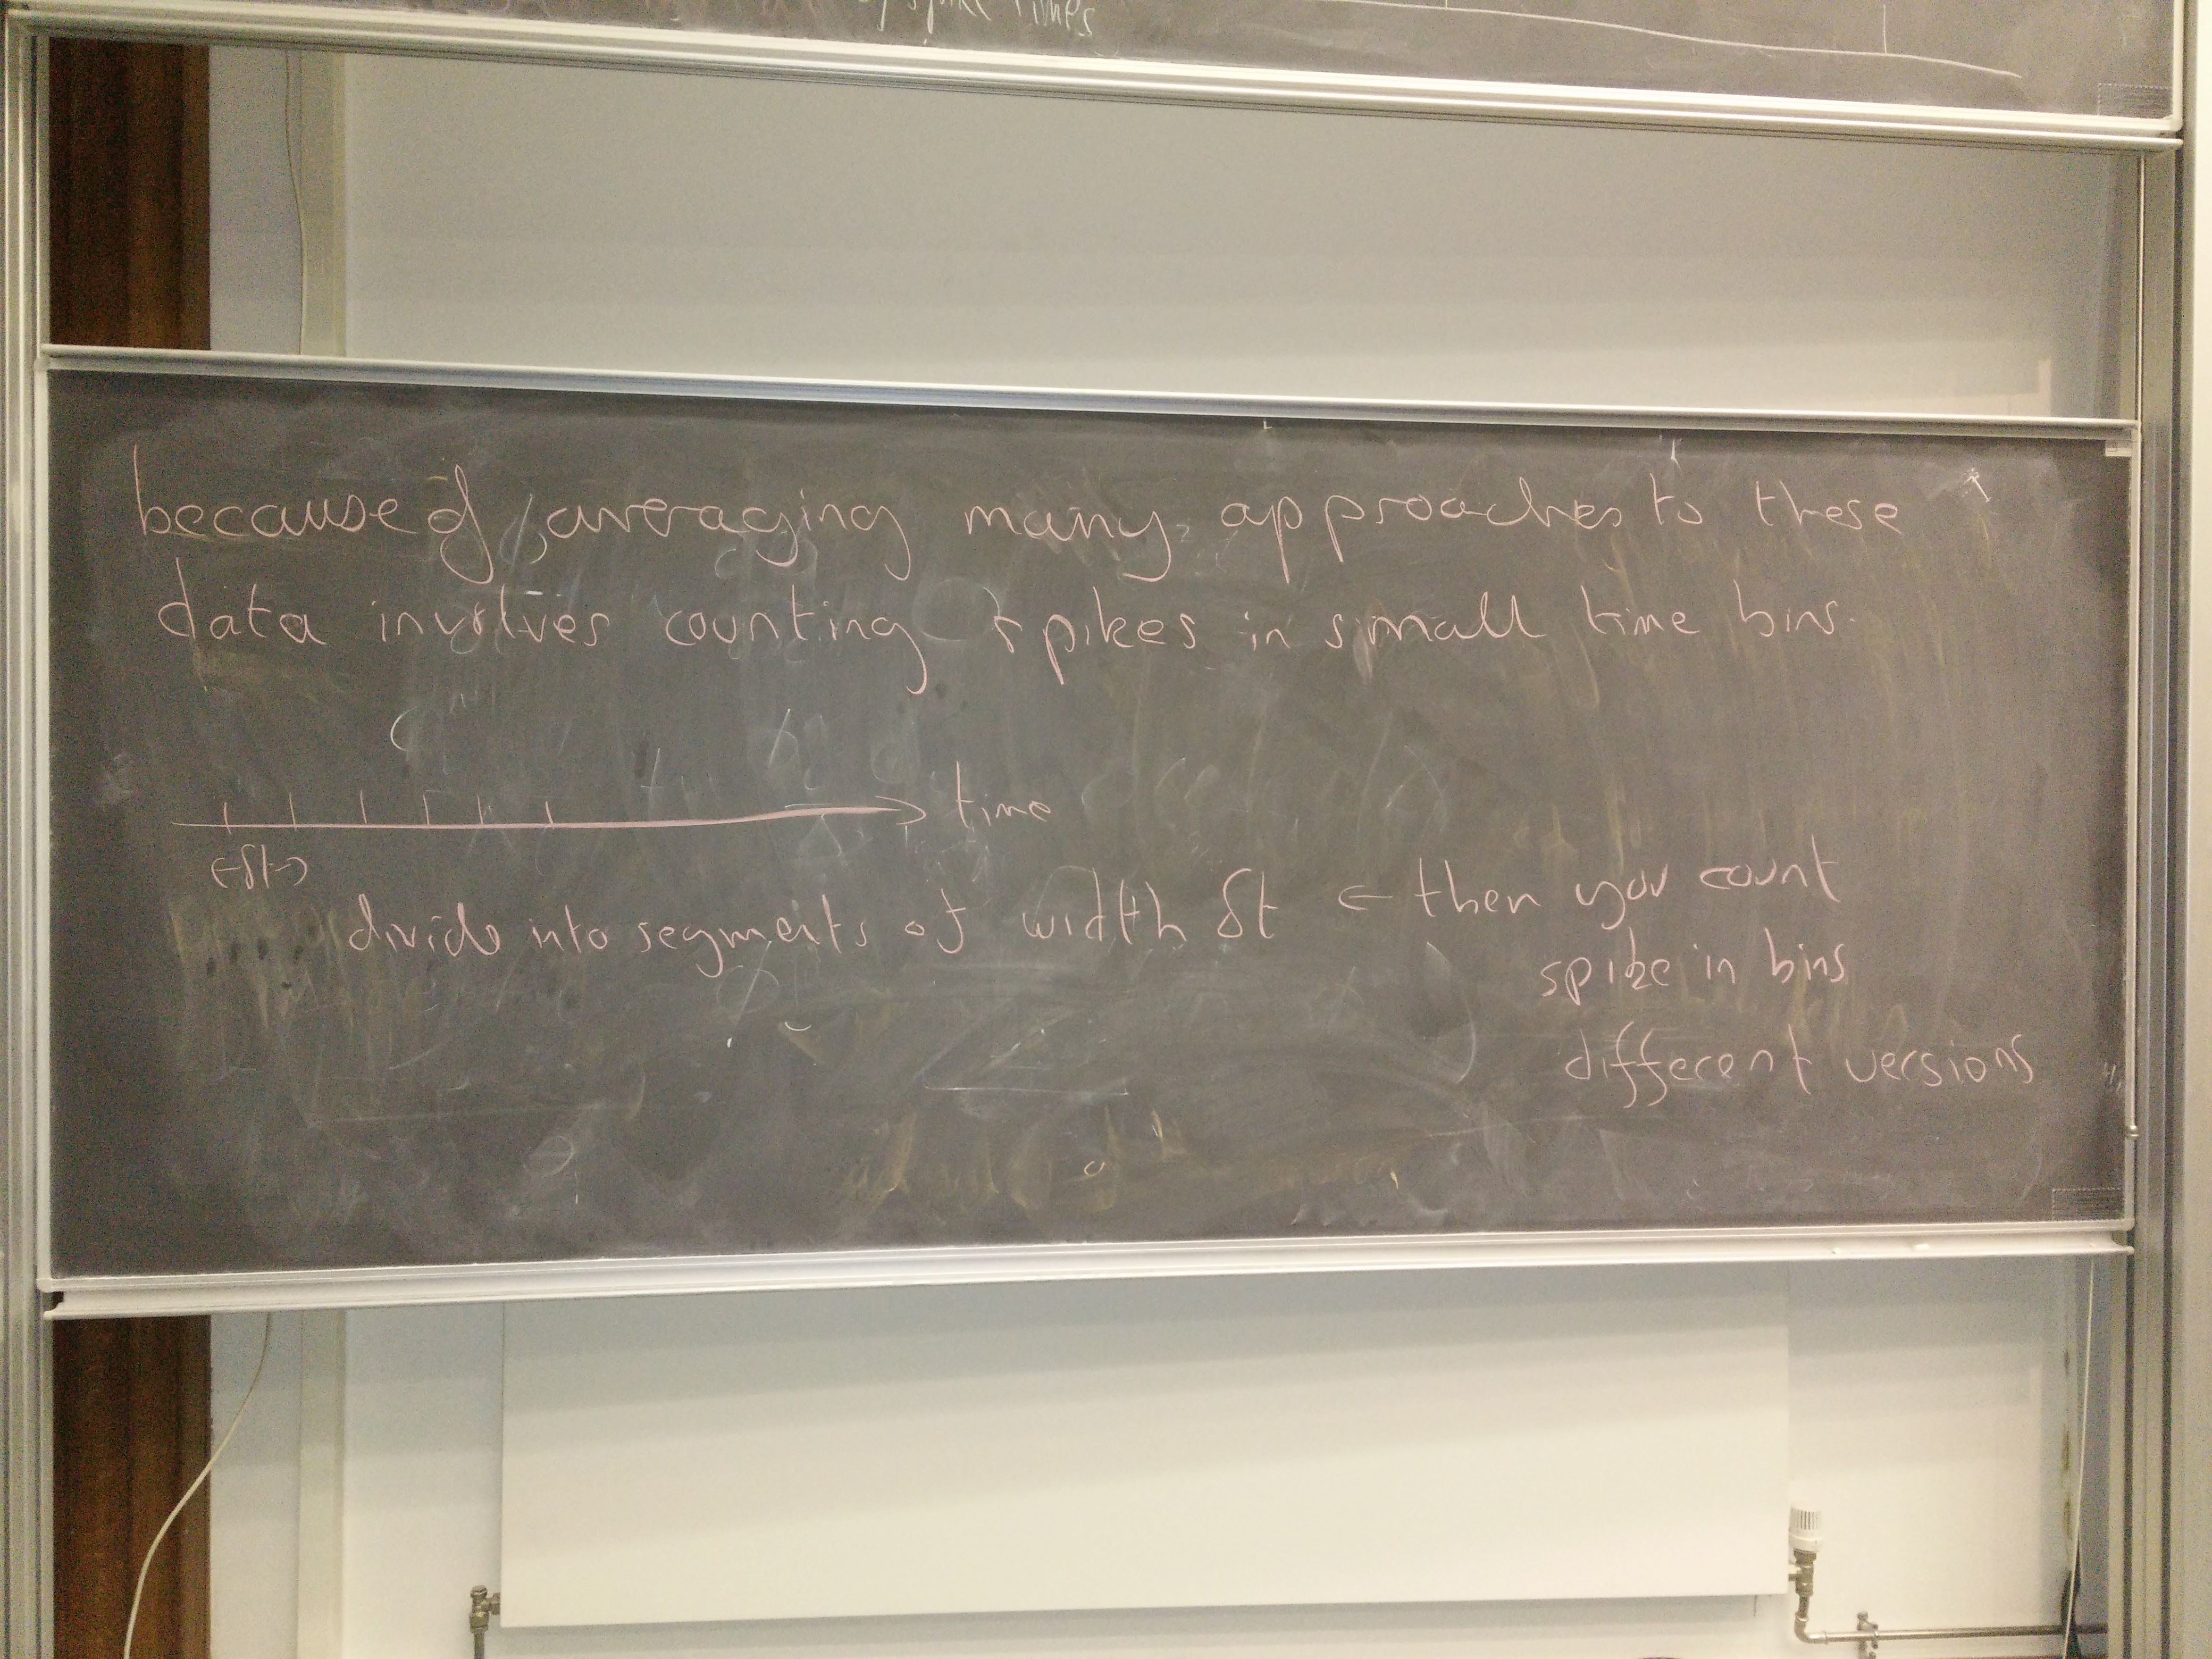 spike times
because of averaging many approaches to these
data involves counting spikes in small time bins.
time
←δt→
divide into segments of width δt ← then you count
spike in bins
different versions